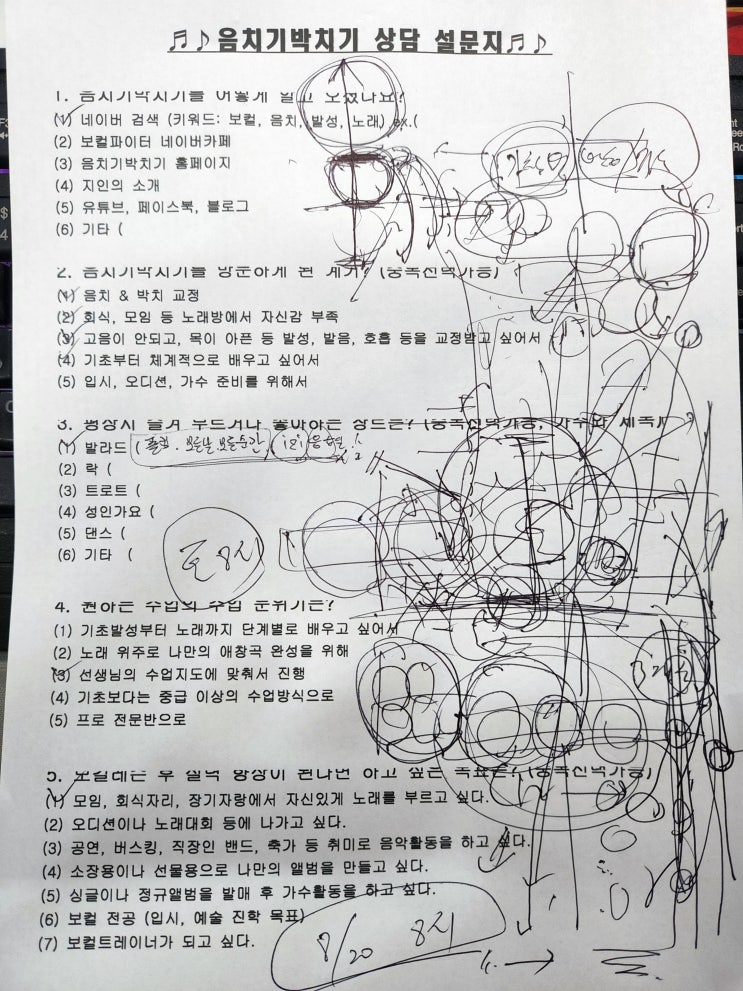 ♬♪음치기박치기 상담 설문지♬♪
1. 음치기박치기를 어떻게 알고 오셨나요?
(1) 네이버 검색 (키워드: 보컬, 음치, 발성, 노래) ex.(
(2) 보컬파이터 네이버카페
(3) 음치기박치기 홈페이지
(4) 지인의 소개
(5) 유튜브, 페이스북, 블로그
(6) 기타 (
2. 음치기박치기를 방문하게 된 계기? (중복선택가능)
(1) 음치 & 박치 교정
(2) 회식, 모임 등 노래방에서 자신감 부족
(3) 고음이 안되고, 목이 아픈 등 발성, 발음, 호흡 등을 교정받고 싶어서
(4) 기초부터 체계적으로 배우고 싶어서
(5) 입시, 오디션, 가수 준비를 위해서
3. 평상시 즐겨 부르거나 좋아하는 장르는? (중복선택가능, 가수와 제목)
(1) 발라드 ( 모든날 모든순간
(2) 락 (
(3) 트로트 (
(4) 성인가요 (
(5) 댄스 (
(6) 기타 (
8시
4. 원하는 수업의 수업 분위기는?
(1) 기초발성부터 노래까지 단계별로 배우고 싶어서
(2) 노래 위주로 나만의 애창곡 완성을 위해
(3) 선생님의 수업지도에 맞춰서 진행
(4) 기초보다는 중급 이상의 수업방식으로
(5) 프로 전문반으로
5. 보컬레슨 후 실력 향상이 된다면 하고 싶은 목표는? (중복선택가능)
(1) 모임, 회식자리, 장기자랑에서 자신있게 노래를 부르고 싶다.
(2) 오디션이나 노래대회 등에 나가고 싶다.
(3) 공연, 버스킹, 직장인 밴드, 축가 등 취미로 음악활동을 하고 싶다.
(4) 소장용이나 선물용으로 나만의 앨범을 만들고 싶다.
(5) 싱글이나 정규앨범을 발매 후 가수활동을 하고 싶다.
(6) 보컬 전공 (입시, 예술 진학 목표)
(7) 보컬트레이너가 되고 싶다.
8/20 8시